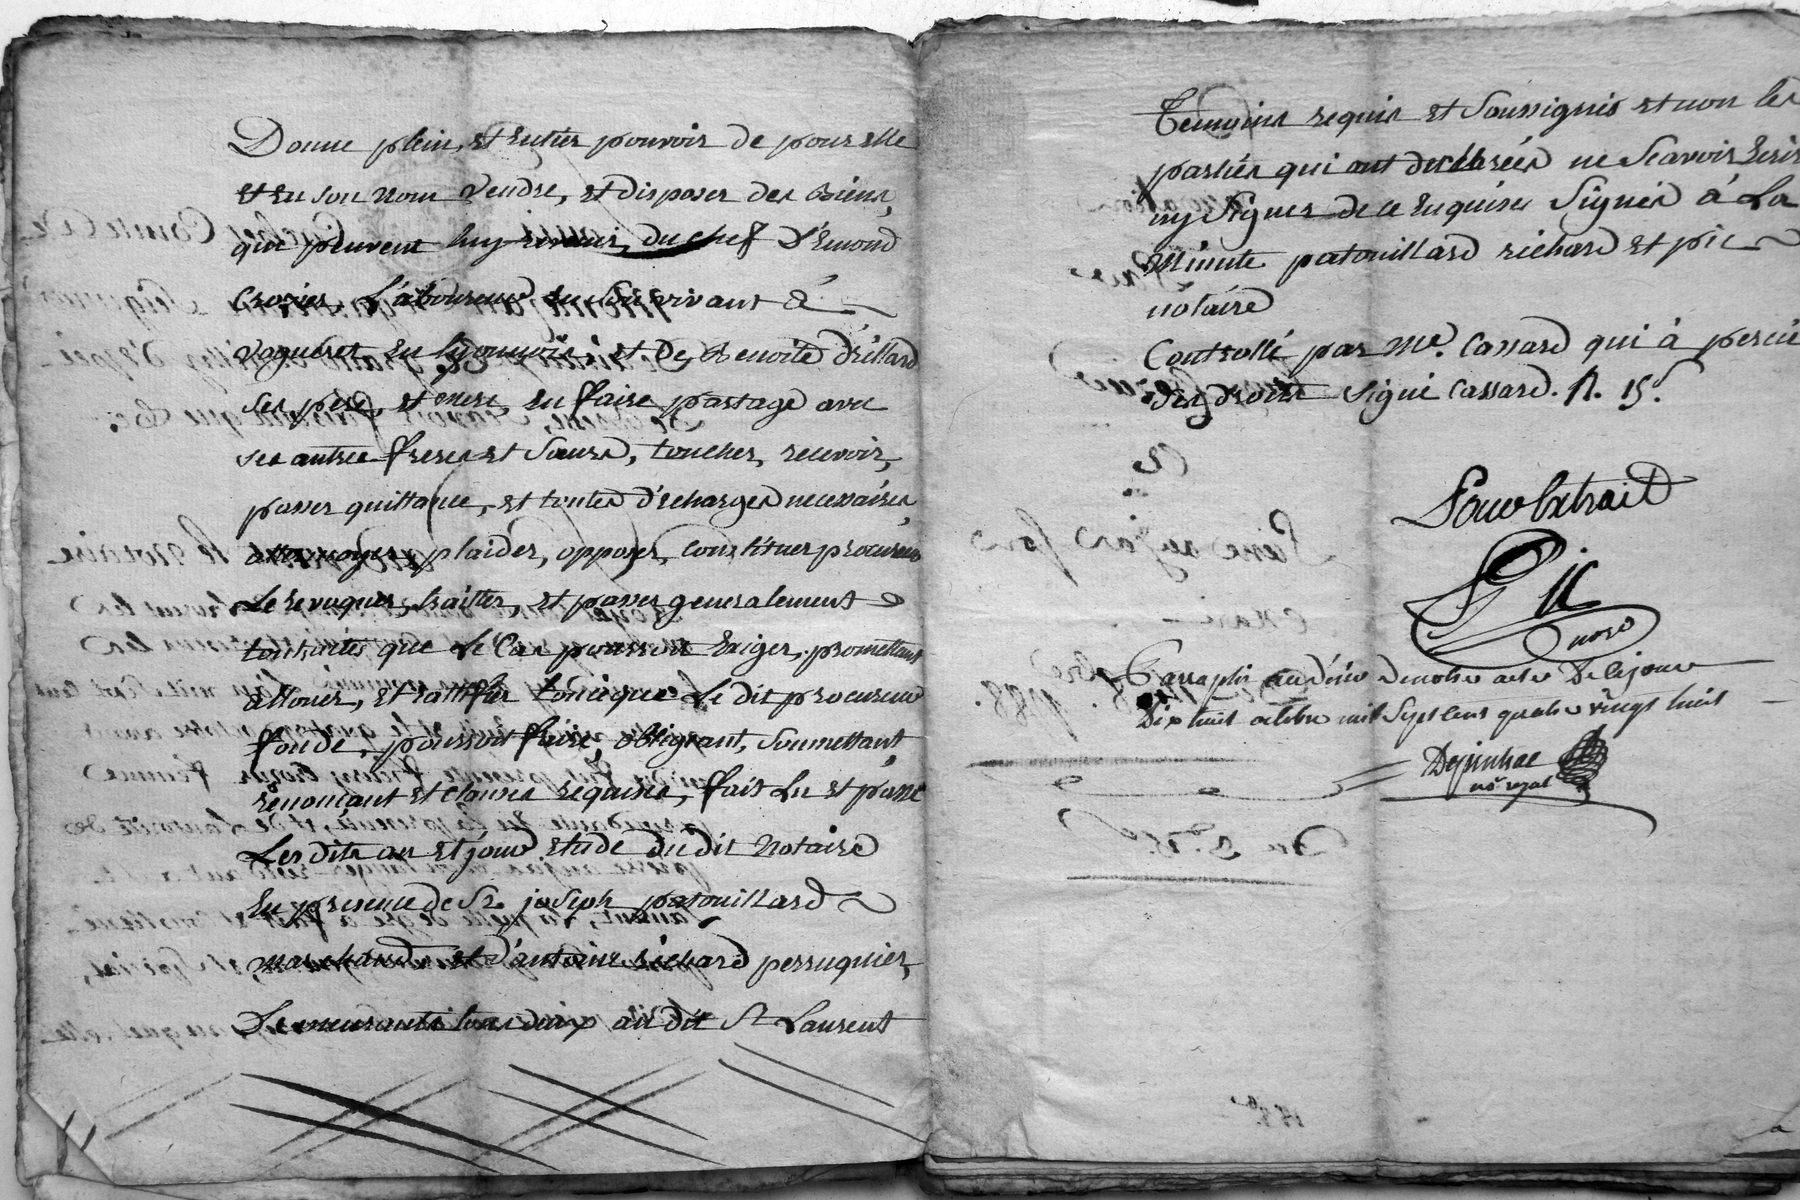 Donne plein, et Entier pouvoir de pour elle
et En son nom Vendre, et disposer des Biens,
qui peuvent luy revenir, du chef d'Emond
Crozier Laboureur En son vivant à
vogneret En lyonnois, et De Benoite drillard
ses pere, et mere En faire partage avec
ses autres freres et Sœurs, toucher, recevoir,
passer quittance, et toutes d'echarges necessaires
plaider, opposer, Constituer procureur
Le revoquer, traitter, et passer generalement
tout que Le Cas pourroit Exiger, promettant
allouer, et rattifier tout ce que Le dit procureur
fondé, pourroit faire, obligeant, Soumettant
renonçant et clauses requises, fait Lu et passé
Les dits an et jour etude du dit notaire
En presence de Sr. joseph patouillard
marchand et d'antoine richard perruquier,
Demeurants tous deux au dit St Laurent
Temoins requis et Soussignés et non les
parties qui ont declarées ne Scavoir Ecrire
ny Signer de ce Enquises Signés à La
Minute patouillard richard et pic
notaire
Controllé par Me. Cassard qui à percu
des droits signé Cassard. R. 15s.
Pour Extrait
Pic
nore
Parraphé au désir de notre acte De ce jour
Dix huit octobre mil Sept cent quatre vingt huit
no royal